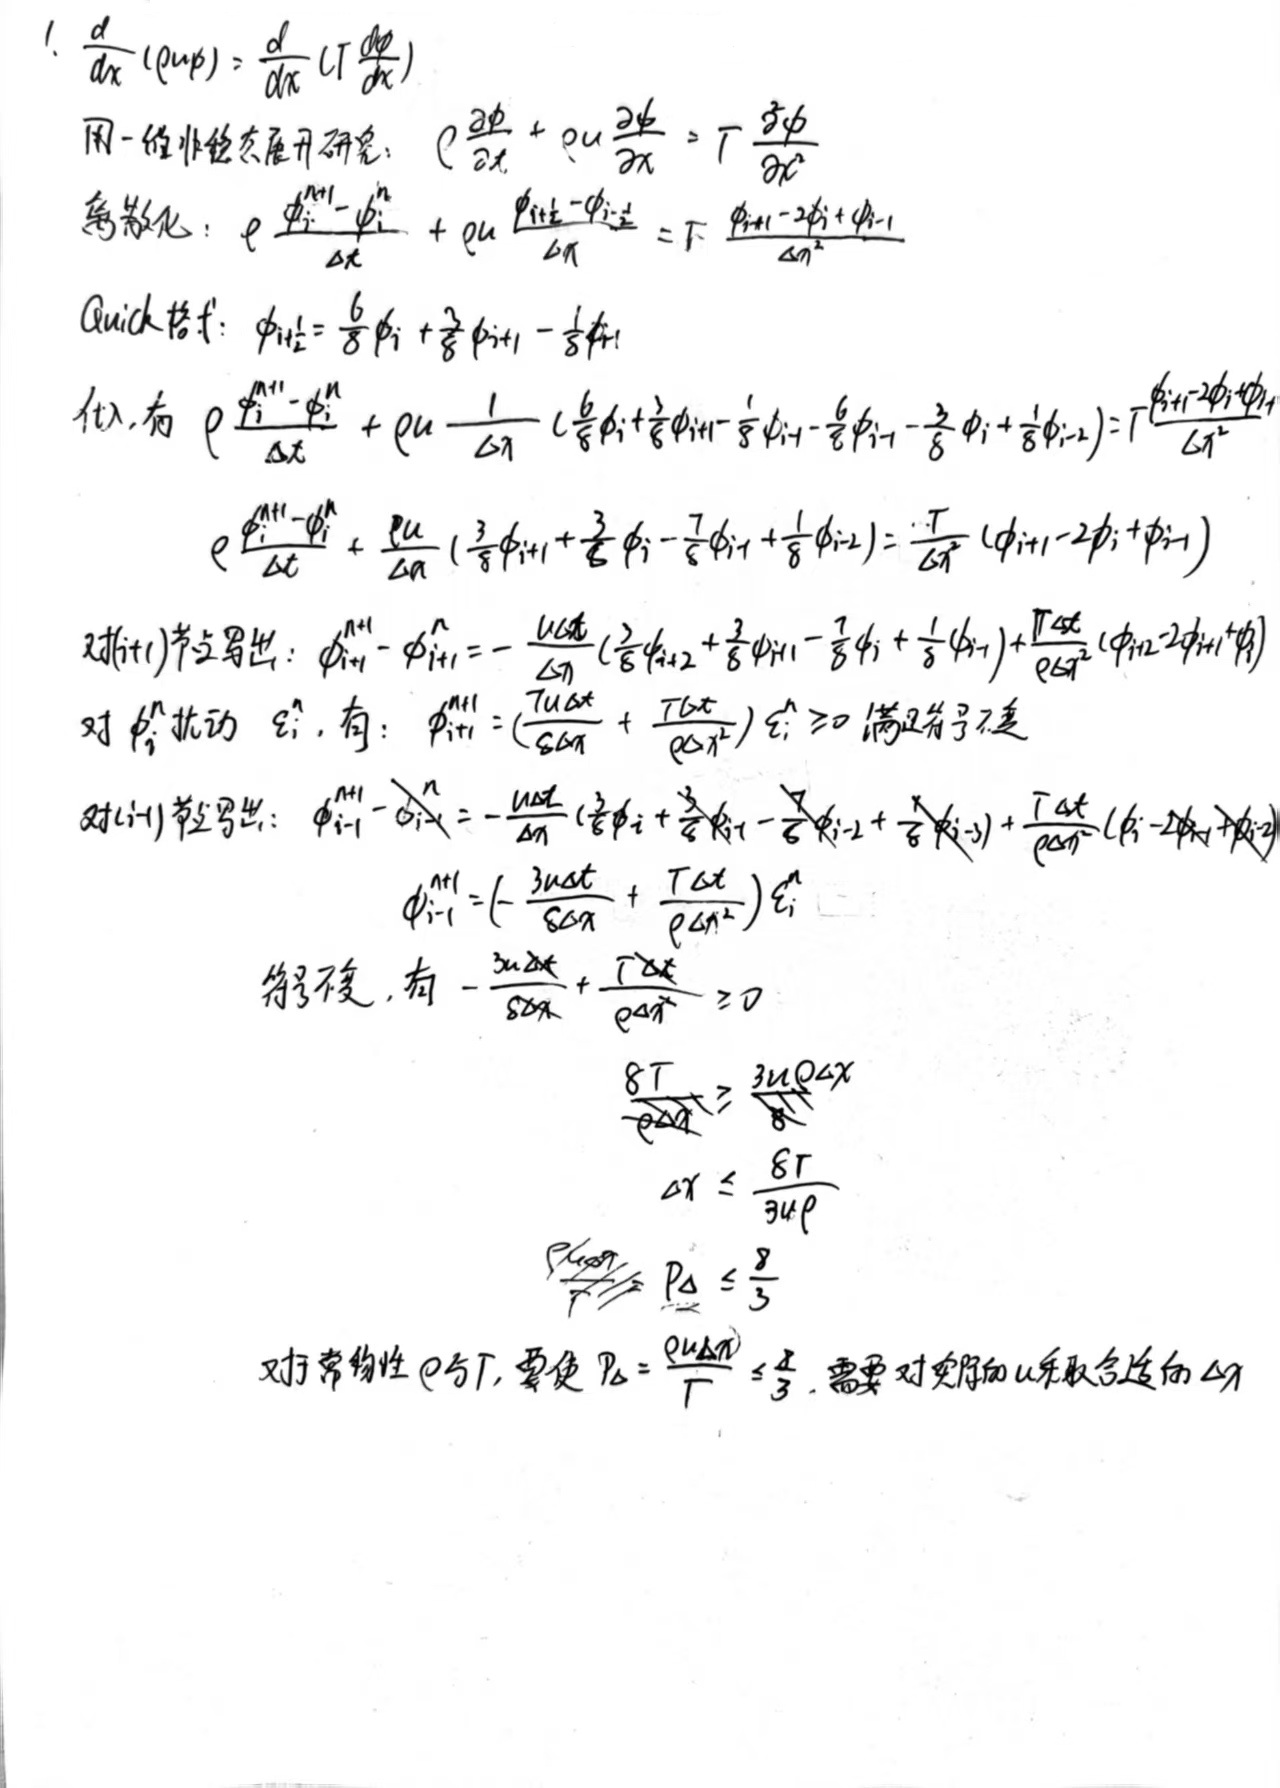 1. d/dx (ρuφ) = d/dx (Γ dφ/dx)
用一维非稳态展开研究: ρ ∂φ/∂t + ρu ∂φ/∂x = Γ ∂²φ/∂x²
离散化: ρ (φᵢⁿ⁺¹ - φᵢⁿ)/Δt + ρu (φ_{i+1/2} - φ_{i-1/2})/Δx = Γ (φ_{i+1} - 2φᵢ + φ_{i-1})/Δx²
Quick格式: φ_{i+1/2} = 6/8 φᵢ + 3/8 φ_{i+1} - 1/8 φ_{i-1}
代入,有 ρ (φᵢⁿ⁺¹ - φᵢⁿ)/Δt + ρu 1/Δx (6/8 φᵢ + 3/8 φ_{i+1} - 1/8 φ_{i-1} - 6/8 φ_{i-1} - 3/8 φᵢ + 1/8 φ_{i-2}) = Γ (φ_{i+1} - 2φᵢ + φ_{i-1})/Δx²
ρ (φᵢⁿ⁺¹ - φᵢⁿ)/Δt + ρu/Δx (3/8 φ_{i+1} + 3/8 φᵢ - 7/8 φ_{i-1} + 1/8 φ_{i-2}) = Γ/Δx² (φ_{i+1} - 2φᵢ + φ_{i-1})
对(i+1)节点写出: φ_{i+1}ⁿ⁺¹ - φ_{i+1}ⁿ = - uΔt/Δx (3/8 φ_{i+2} + 3/8 φ_{i+1} - 7/8 φᵢ + 1/8 φ_{i-1}) + ΓΔt/ρΔx² (φ_{i+2} - 2φ_{i+1} + φᵢ)
对 φᵢⁿ 扰动 εᵢⁿ, 有: φ_{i+1}ⁿ⁺¹ = (7uΔt/8Δx + ΓΔt/ρΔx²) εᵢⁿ ≥ 0 满足符号不变
对(i-1)节点写出: φ_{i-1}ⁿ⁺¹ - φ_{i-1}ⁿ = - uΔt/Δx (3/8 φᵢ + 3/8 φ_{i-1} - 7/8 φ_{i-2} + 1/8 φ_{i-3}) + ΓΔt/ρΔx² (φᵢ - 2φ_{i-1} + φ_{i-2})
φ_{i-1}ⁿ⁺¹ = (- 3uΔt/8Δx + ΓΔt/ρΔx²) εᵢⁿ
符号不变,有 - 3uΔt/8Δx + ΓΔt/ρΔx² ≥ 0
8Γ/ρΔx ≥ 3uρΔx/8
Δx ≤ 8Γ/3uρ
P_Δ ≤ 8/3
对于常物性 ρ与Γ, 要使 P_Δ = ρuΔx/Γ ≤ 8/3, 需要对实际的u采取合适的Δx